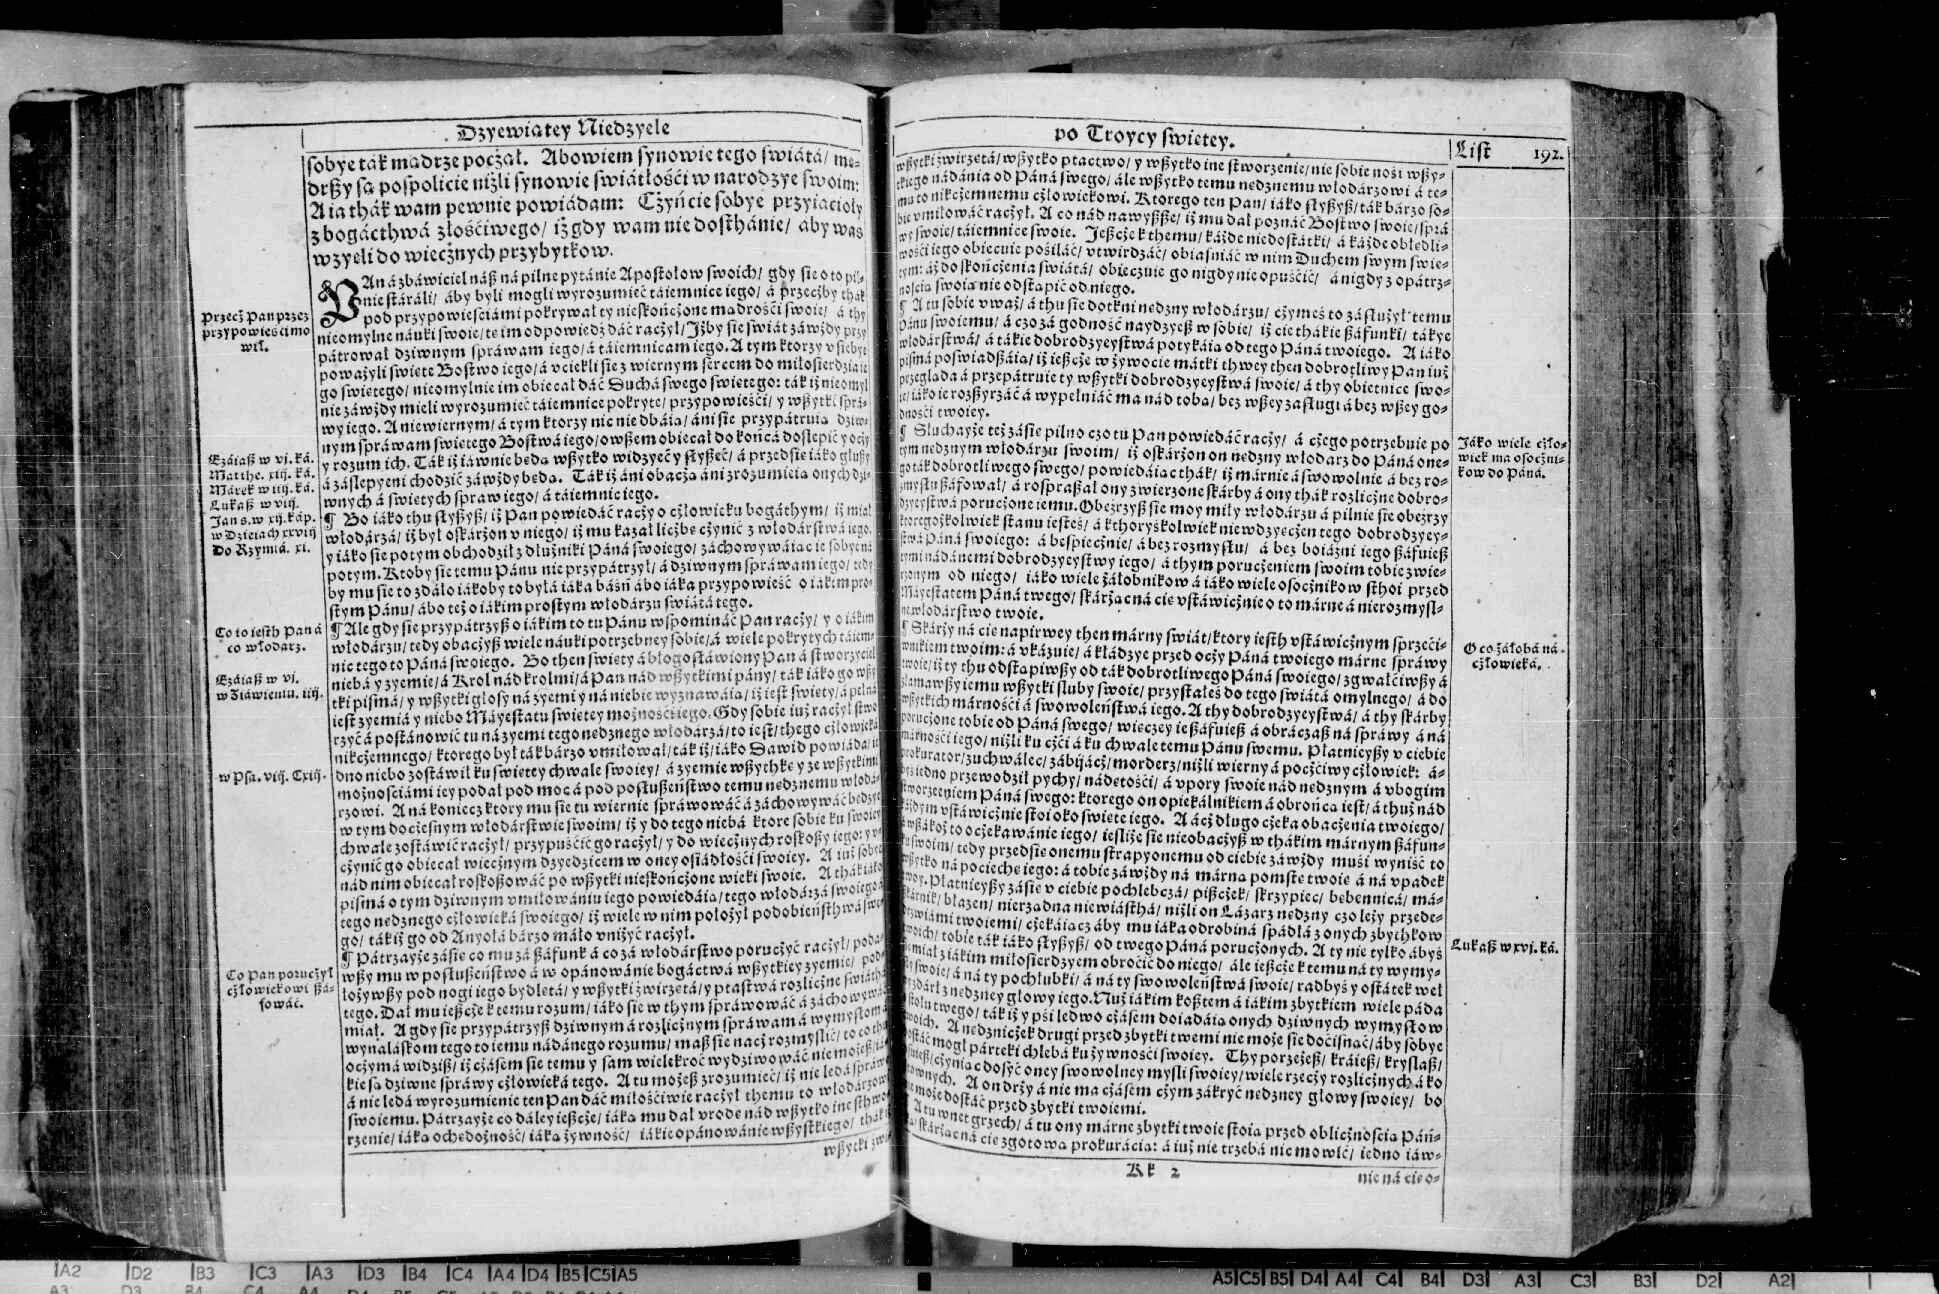 Dzyewiatey Niedzyele
sobye ták mądrze poczał. Abowiem synowie tego swiátá/ me-
drszy są pospolicie niźli synowie swiátłosći w narodzye swoim:
A ia thák wam pewnie powiádam: Czyńcie sobye przyiacioły
z bogácthwá złosćiwego/ iż gdy wam nie dosthánie/ aby was
wzyeli do wiecżnych przybytkow.
PAn á zbáwiciel náß ná pilne pytánie Apostołow swoich/ gdy sie o to pil-
nie stáráli/ áby byli mogli wyrozumieć táiemnice iego/ á przecżby thák
pod przypowiesciámi pokrywał ty nieskońcżone mądrosći swoie/ á thy
nieomylne náuki swoie/ te im odpowiedź dáć racżył/ Iżby sie swiát záwżdy przy
pátrował dziwnym spráwam iego/ á táiemnicam iego. A tym ktorzy v siebye
poważyli swięte Bostwo iego/ á vciekli sie z wiernym sercem do miłosierdzia ie
go swiętego/ nieomylnie im obiecał dáć Duchá swego swiętego: ták iż nieomyl
nie záwżdy mieli wyrozumieć táiemnice pokryte/ przypowiesći/ y wßytki sprá-
wy iego. A niewiernym/ á tym ktorzy nic nie dbáią/ áni sie przypátruią dziw-
nym spráwam swiętego Bostwá iego/ owßem obiecał do końcá doslepić y ocży
y rozum ich. Ták iż iáwnie będą wßytko widzyeć y słyßeć/ á przedsie iáko głußy
á záslepyeni chodzić záwżdy będą. Ták iż áni obacżą áni zrozumieią onych dzi-
wnych á swiętych spraw iego/ á táiemnic iego.
¶ Bo iáko thu słyßyß/ iż Pan powiedáć racży o cżłowieku bogáthym/ iż miał
włodárzá/ iż był oskárżon v niego/ iż mu kazał licżbę cżynić z włodárstwá iego/
y iáko sie potym obchodził z dłużniki Páná swoiego/ záchowywáiąc ie sobye ná
potym. Ktoby sie temu Pánu nie przypátrzył/ á dziwnym spráwam iego/ tedy
by mu sie to zdáło iákoby to byłá iáka báśń ábo iáka przypowieść o iákim pro-
stym Pánu/ ábo też o iákim prostym włodárzu swiátá tego.
¶ Ale gdy sie przypátrzyß o iákim to tu Pánu wspomináć Pan racży/ y o iákim
włodárzu/ tedy obacżyß wiele náuki potrzebney sobie/ á wiele pokrytych táiem-
nic tego to Páná swoiego. Bo then swięty á błogosłáwiony Pan á stworzyciel
niebá y zyemie/ á Krol nád krolmi/ á Pan nád wßytkimi pány/ ták iáko go wßy
tki pismá/ y wßytki głosy ná zyemi y ná niebie wyznawáią/ iż iest swięty/ á pełná
iest zyemiá y niebo Máyestatu swiętey możnosći iego. Gdy sobie iuż racżył stwo
rzyć á postánowić tu ná zyemi tego nędznego włodárzá/ to iest/ thego cżłowieká
nikcżemnego/ ktorego był ták bárzo vmiłował/ ták iż/ iáko Dawid powiáda/ ie
dno niebo zostáwił ku swiętey chwale swoiey/ á zyemię wßythkę y ze wßytkimi
możnosciámi iey podał pod moc á pod posłußeństwo temu nędznemu włodá-
rzowi. A ná koniecz ktory mu sie tu wiernie spráwowáć á záchowywáć będzye
w tym docżesnym włodárstwie swoim/ iż y do tego niebá ktore sobie ku swoiey
chwale zostáwić racżył/ przypuścić go racżył/ y do wiecżnych roskoßy iego: y v-
cżynić go obiecał wiecżnym dzyedzicem w oney osiádłosći swoiey. A iuż sobye
nád nim obiecał roskoßowáć po wßytki nieskońcżone wieki swoie. A thák iáko
pismá o tym dziwnym vmiłowániu iego powiedáią/ tego włodárzá swoiego/
tego nędznego cżłowieká swoiego/ iż wiele w nim położył podobieństhwá swe-
go/ ták iż go od Anyołá bárzo máło vniżyć racżył.
¶ Pátrzayże zásie co mu zá ßáfunk á co zá włodárstwo porucżyć racżył/ podá-
wßy mu w posłußeństwo á w opánowánie bogáctwá wßytkiey zyemie/ pod-
łożywßy pod nogi iego bydlętá/ y wßytki zwirzętá/ y ptastwá rozlicżne swiáthá
tego. Dał mu ießcże k temu rozum/ iáko sie w thym spráwowáć á záchowywáć
miał. A gdy sie przypátrzyß dziwnym á rozlicżnym spráwam á wymysłom á
wynáláskom tego to iemu nádánego rozumu/ maß sie nácż rozmyslić/ to co thu
ocżymá widziß/ iż cżásem sie temu y sam wielekroć wydziwowáć nie możeß/ iá-
kie są dziwne spráwy cżłowieká tego. A tu możeß zrozumieć/ iż nie ledá spráwę
á nie ledá wyrozumienie ten Pan dáć miłosćiwie racżył themu to włodárzowi
swoiemu. Pátrzayże co dáley ießcże/ iáką mu dał vrodę nád wßytko ine sthwo-
rzenie/ iáką ochędożność/ iáką żywność/ iákie opánowánie wßystkiego/ thák iż
wßytki zwi-
Przecż Pan przez
przypowiesći mo
wił.
Ezáiaß w vj. ká.
Matthe. xiij. ká.
Márek w iiij. ká.
Lukaß w viij.
Jan s. w xij. káp.
w Dzieiach xxviij
Do Rzymiá. xi.
Co to iesth Pan á
co włodarz.
Ezáiaß w vj.
w Ziáwieniu. iiij.
w Psa. viij. Cxiij.
Co Pan porucżył
cżłowiekowi ßá-
fowáć.
po Troycy swietey.
List 192.
wßytki zwirzętá/ wßytko ptactwo/ y wßytko ine stworzenie/ nie sobie nosi wßy-
tkiego nádánia od Páná swego/ ále wßytko temu nędznemu włodárzowi á te-
mu to nikcżemnemu cżłowiekowi. Ktorego ten Pan/ iáko słyßyß/ ták bárzo so-
bie vmiłowáć racżył. A co nád nawyßße/ iż mu dał poznáć Bostwo swoie/ sprá
wy swoie/ táiemnice swoie. Jeßcże k themu/ káżde niedostátki/ á káżde obłędli-
wosći iego obiecuie pośiláć/ vtwirdzáć/ obiásniáć w nim Duchem swym swię-
tym: áż do skońcżenia swiátá/ obiecżuie go nigdy nie opuścić/ á nigdy z opátrz-
noscią swoią nie odstąpić od niego.
¶ A tu sobie vważ/ á thu sie dotkni nędzny włodárzu/ cżymeś to zásłużył temu
Pánu swoiemu/ á czo zá godność naydzyeß w sobie/ iż cie thákie ßáfunki/ tákye
włodárstwá/ á tákie dobrodzyeystwá potykáią od tego Páná twoiego. A iáko
pismá poswiadßáią/ iż ießcże w żywocie mátki thwey then dobrotliwy Pan iuż
przegląda á przepátruie ty wßytki dobrodzyeystwá swoie/ á thy obietnice swo-
ie/ iáko ie rozßyrzáć á wypełniáć ma nád tobą/ bez wßey zasługi á bez wßey go-
dnosći twoiey.
¶ Słuchayże też zásie pilno czo tu Pan powiedáć racży/ á cżego potrzebuie po
tym nędznym włodárzu swoim/ iż oskárżon on nędzny włodarz do Páná one-
go ták dobrotliwego swego/ powiedáiąc thák/ iż márnie á swowolnie á bez ro-
zmysłu ßáfował/ á rospraßał ony zwierzone skárby á ony thák rozlicżne dobro-
dzyeystwá porucżone iemu. Obeźrzyß sie moy miły włodárzu á pilnie sie obeźrzy
ktoregożkolwiek stanu iesteś/ á kthoryśkolwiek niewdzyecżen tego dobrodzyey-
stwá Páná swoiego: á bespiecżnie/ á bez rozmysłu/ á bez boiáźni iego ßáfuieß
tymi nádánemi dobrodzyeystwy iego/ á thym porucżeniem swoim tobie zwie-
rzonym od niego/ iáko wiele żáłobnikow á iáko wiele osocżnikow sthoi przed
Máyestatem Páná twego/ skárżąc ná cie vstáwicżnie o to márne á nierozmysl-
ne włodárstwo twoie.
¶ Skárży ná cie napirwey then márny swiát/ ktory iesth vstáwicżnym sprzeći-
wnikiem twoim: á vkázuie/ á kłádzye przed ocży Páná twoiego márne spráwy
twoie/ iż ty thu odstąpiwßy od ták dobrotliwego Páná swoiego/ zgwałciwßy á
złamawßy iemu wßytki sluby swoie/ przystałeś do tego swiátá omylnego/ á do
wßytkich márnosći á swowoleństwá iego. A thy dobrodzyeystwá/ á thy skárby
porucżone tobie od Páná swego/ więcey ie ßáfuieß á obracaß ná spráwy á ná
márnosći iego/ niźli ku cżci á ku chwale temu Pánu swemu. Płátnieyßy v ciebie
prokurator/ zuchwálec/ zábijácż/ morderz/ niźli wierny á pocżciwy cżłowiek: á-
byś iedno przewodził pychy/ nádętosći/ á vpory swoie nád nędznym á vbogim
stworzeniem Páná swego: ktorego on opiekálnikiem á obrońcą iest/ á thuż nád
káżdym vstáwicżnie stoi oko swięte iego. A ácż długo cżeka obacżenia twoiego/
á wßákoż to ocżekawánie iego/ iesliże sie nieobacżyß w thákim márnym ßáfun-
ku swoim/ tedy przedsie onemu strapyonemu od ciebie záwżdy muśi wyniść to
wßytko ná pociechę iego: á tobie záwżdy ná márną pomstę twoię á ná vpadek
twoy. Płátnieyßy zásie v ciebie pochlebcżá/ pißcżek/ skrzypiec/ bębennicá/ má-
ßkárnik/ błazen/ nierządna niewiásthá/ niźli on Lázarz nędzny czo leży przede-
drzwiámi twoiemi/ cżekáiąc áby mu iáka odrobiná spádłá z onych zbythkow
twoich/ tobie ták iáko słyßyß/ od twego Páná porucżonych. A ty nie tylko ábyś
miał z iákim miłosierdzyem obroćić do niego/ ále ießcże k temu ná ty wymy-
sły swoie/ á ná ty pochlubki/ á ná ty swowoleństwá swoie/ radbyś y ostátek weł
zdárł z nędzney głowy iego. Nuż iákim koßtem á iákim zbytkiem wiele páda
stołu twego/ ták iż y psi ledwo cżásem doiadáią onych dziwnych wymysłow
twoich. A nędznicżek drugi przed zbytki twemi nie może sie dociśnąć/ áby sobye
dostáć mogł párteki chlebá ku żywnosći swoiey. Thy porzeżeß/ kráieß/ kryslaß/
cżyniąc dosyć oney swowolney mysli swoiey/ wiele rzecży rozlicżnych á ko
ßtownych. A on drży á nie ma cżásem cżym zákryć nędzney głowy swoiey/ bo
nie może dostáć przed zbytki twoiemi.
¶ A tu wnet grzech/ á tu ony márne zbytki twoie stoią przed oblicżnoscią Páń-
ską/ skárżąc ná cie zgotową prokurácią: á iuż nie trzebá nic mowić/ iedno iáw-
Kk 2
nie ná cie o-
Jáko wiele cżło-
wiek ma osocżni-
kow do Páná.
O co żáłobá ná
cżłowieká.
Lukaß w xvj. ká.
A2 D2 B3 C3 A3 D3 B4 C4 A4 D4 B5 C5 A5
A5 C5 B5 D4 A4 C4 B4 D3 A3 C3 B3 D2 A2